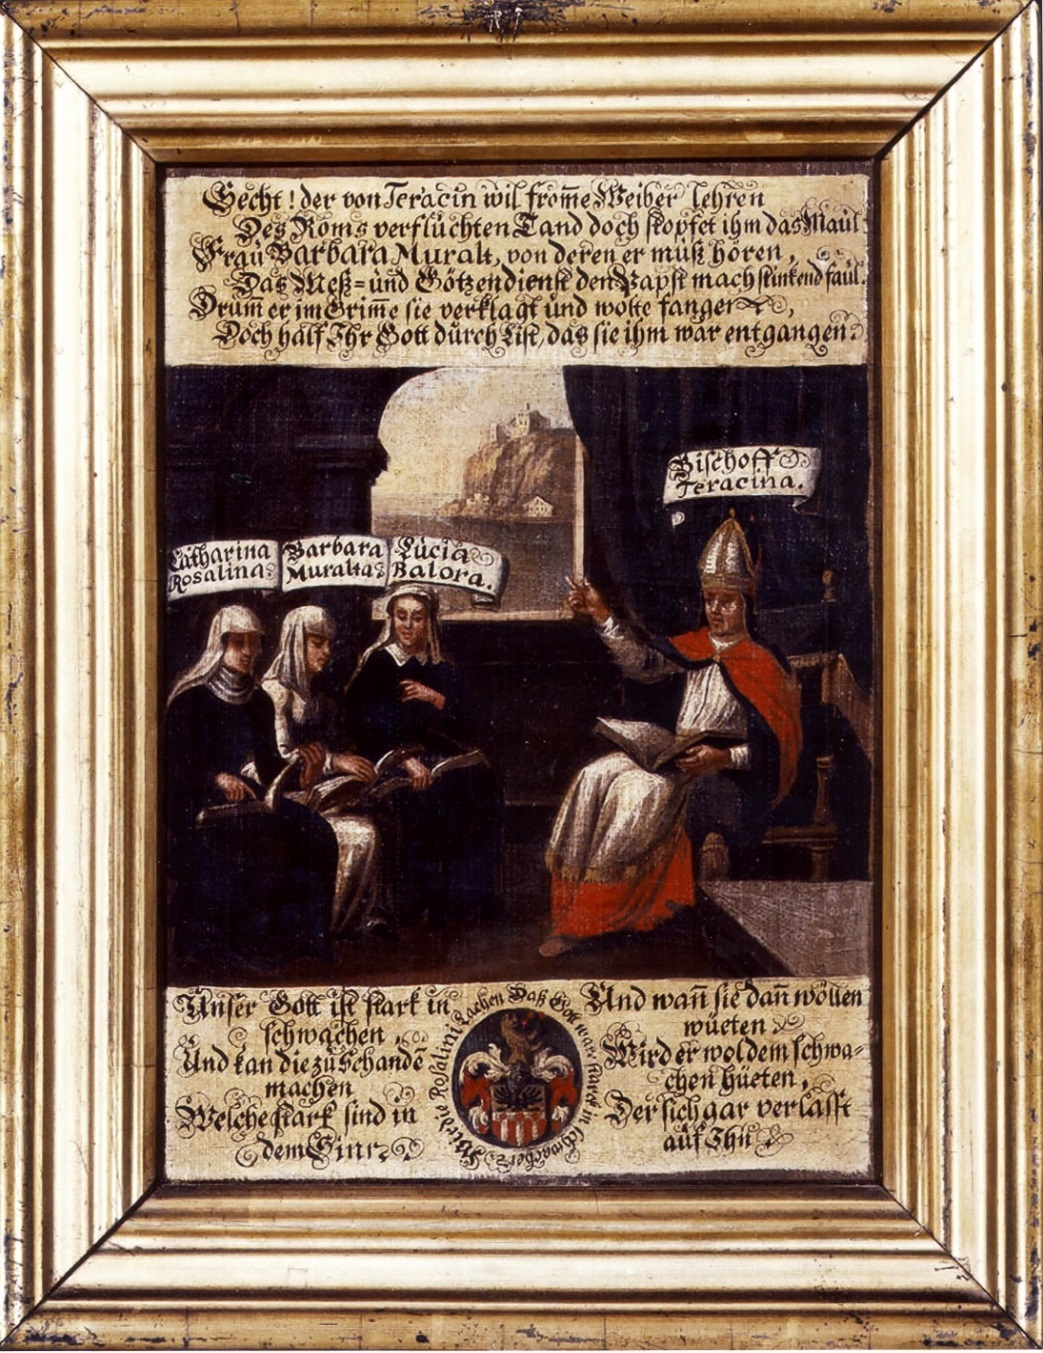 Secht! der von Teracin wil from̄e Weiber lehren
Des Roms verflüchten Tand doch stopfet ihm das Maul
Fraü Barbara Muralt, von deren er müß hören,
Das Meß= und Götzendienst den Papst mach stinkend faul.
Drum̄ er im Grim̄e sie verklagt ünd wolte fangen,
Doch half Ihr Gott dürch List, das sie ihm war entgangen.
Bischoff
Teracina.
Catharina
Rosalina.
Barbara
Muralta.
Lücia
Balora.
Unser Gott ist stark in
schwachen,
Und kan die zü Schandē
machen
Welche stark sind in
dem Sin̄
Daß Gott ware starck in schwachen
Rosalini Lachen
Und wan̄ sie dan̄ wöllen
wüeten
Wird er wol dem schwa-
chen hüeten,
Der sich gar verlasst
aüf Ihn